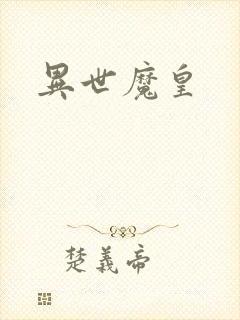 異世魔皇
楚義帝